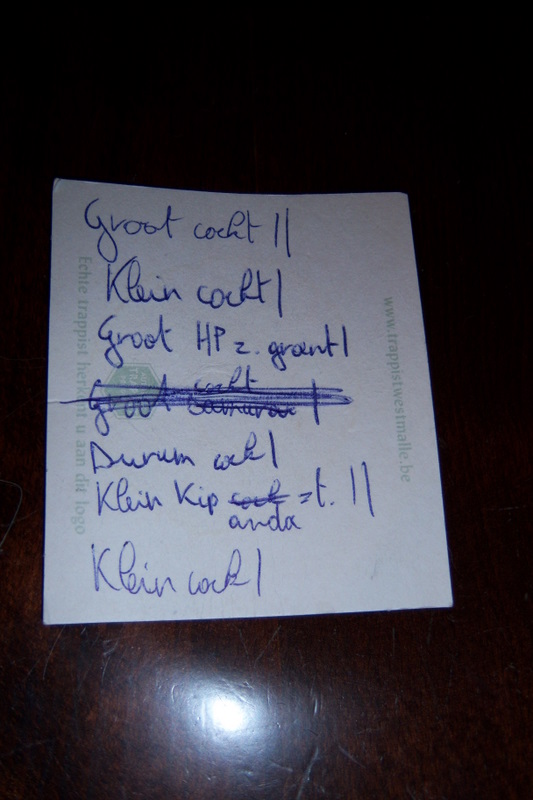 Groot cocht ||
Klein cockt |
Groot HP z. groent |
Groot cocht |
Durum cock |
Klein Kip cock z t. ||
anda
Klein cock |
Echte trappist herkent u aan dit logo
www.trappistwestmalle.be